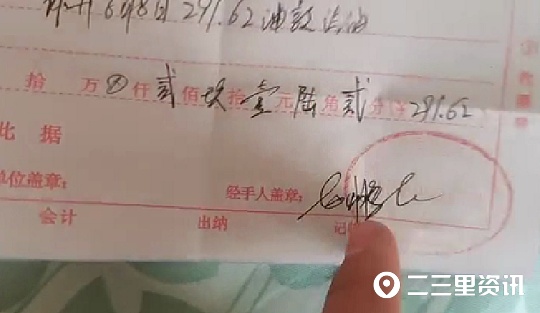 6月8日 291.62 油款 汽油
拾 万 仟 贰 佰 玖 拾 壹 元 陆 角 贰 分 291.62
此据
单位盖章: 经手人盖章:
会计 出纳 记
二三里资讯